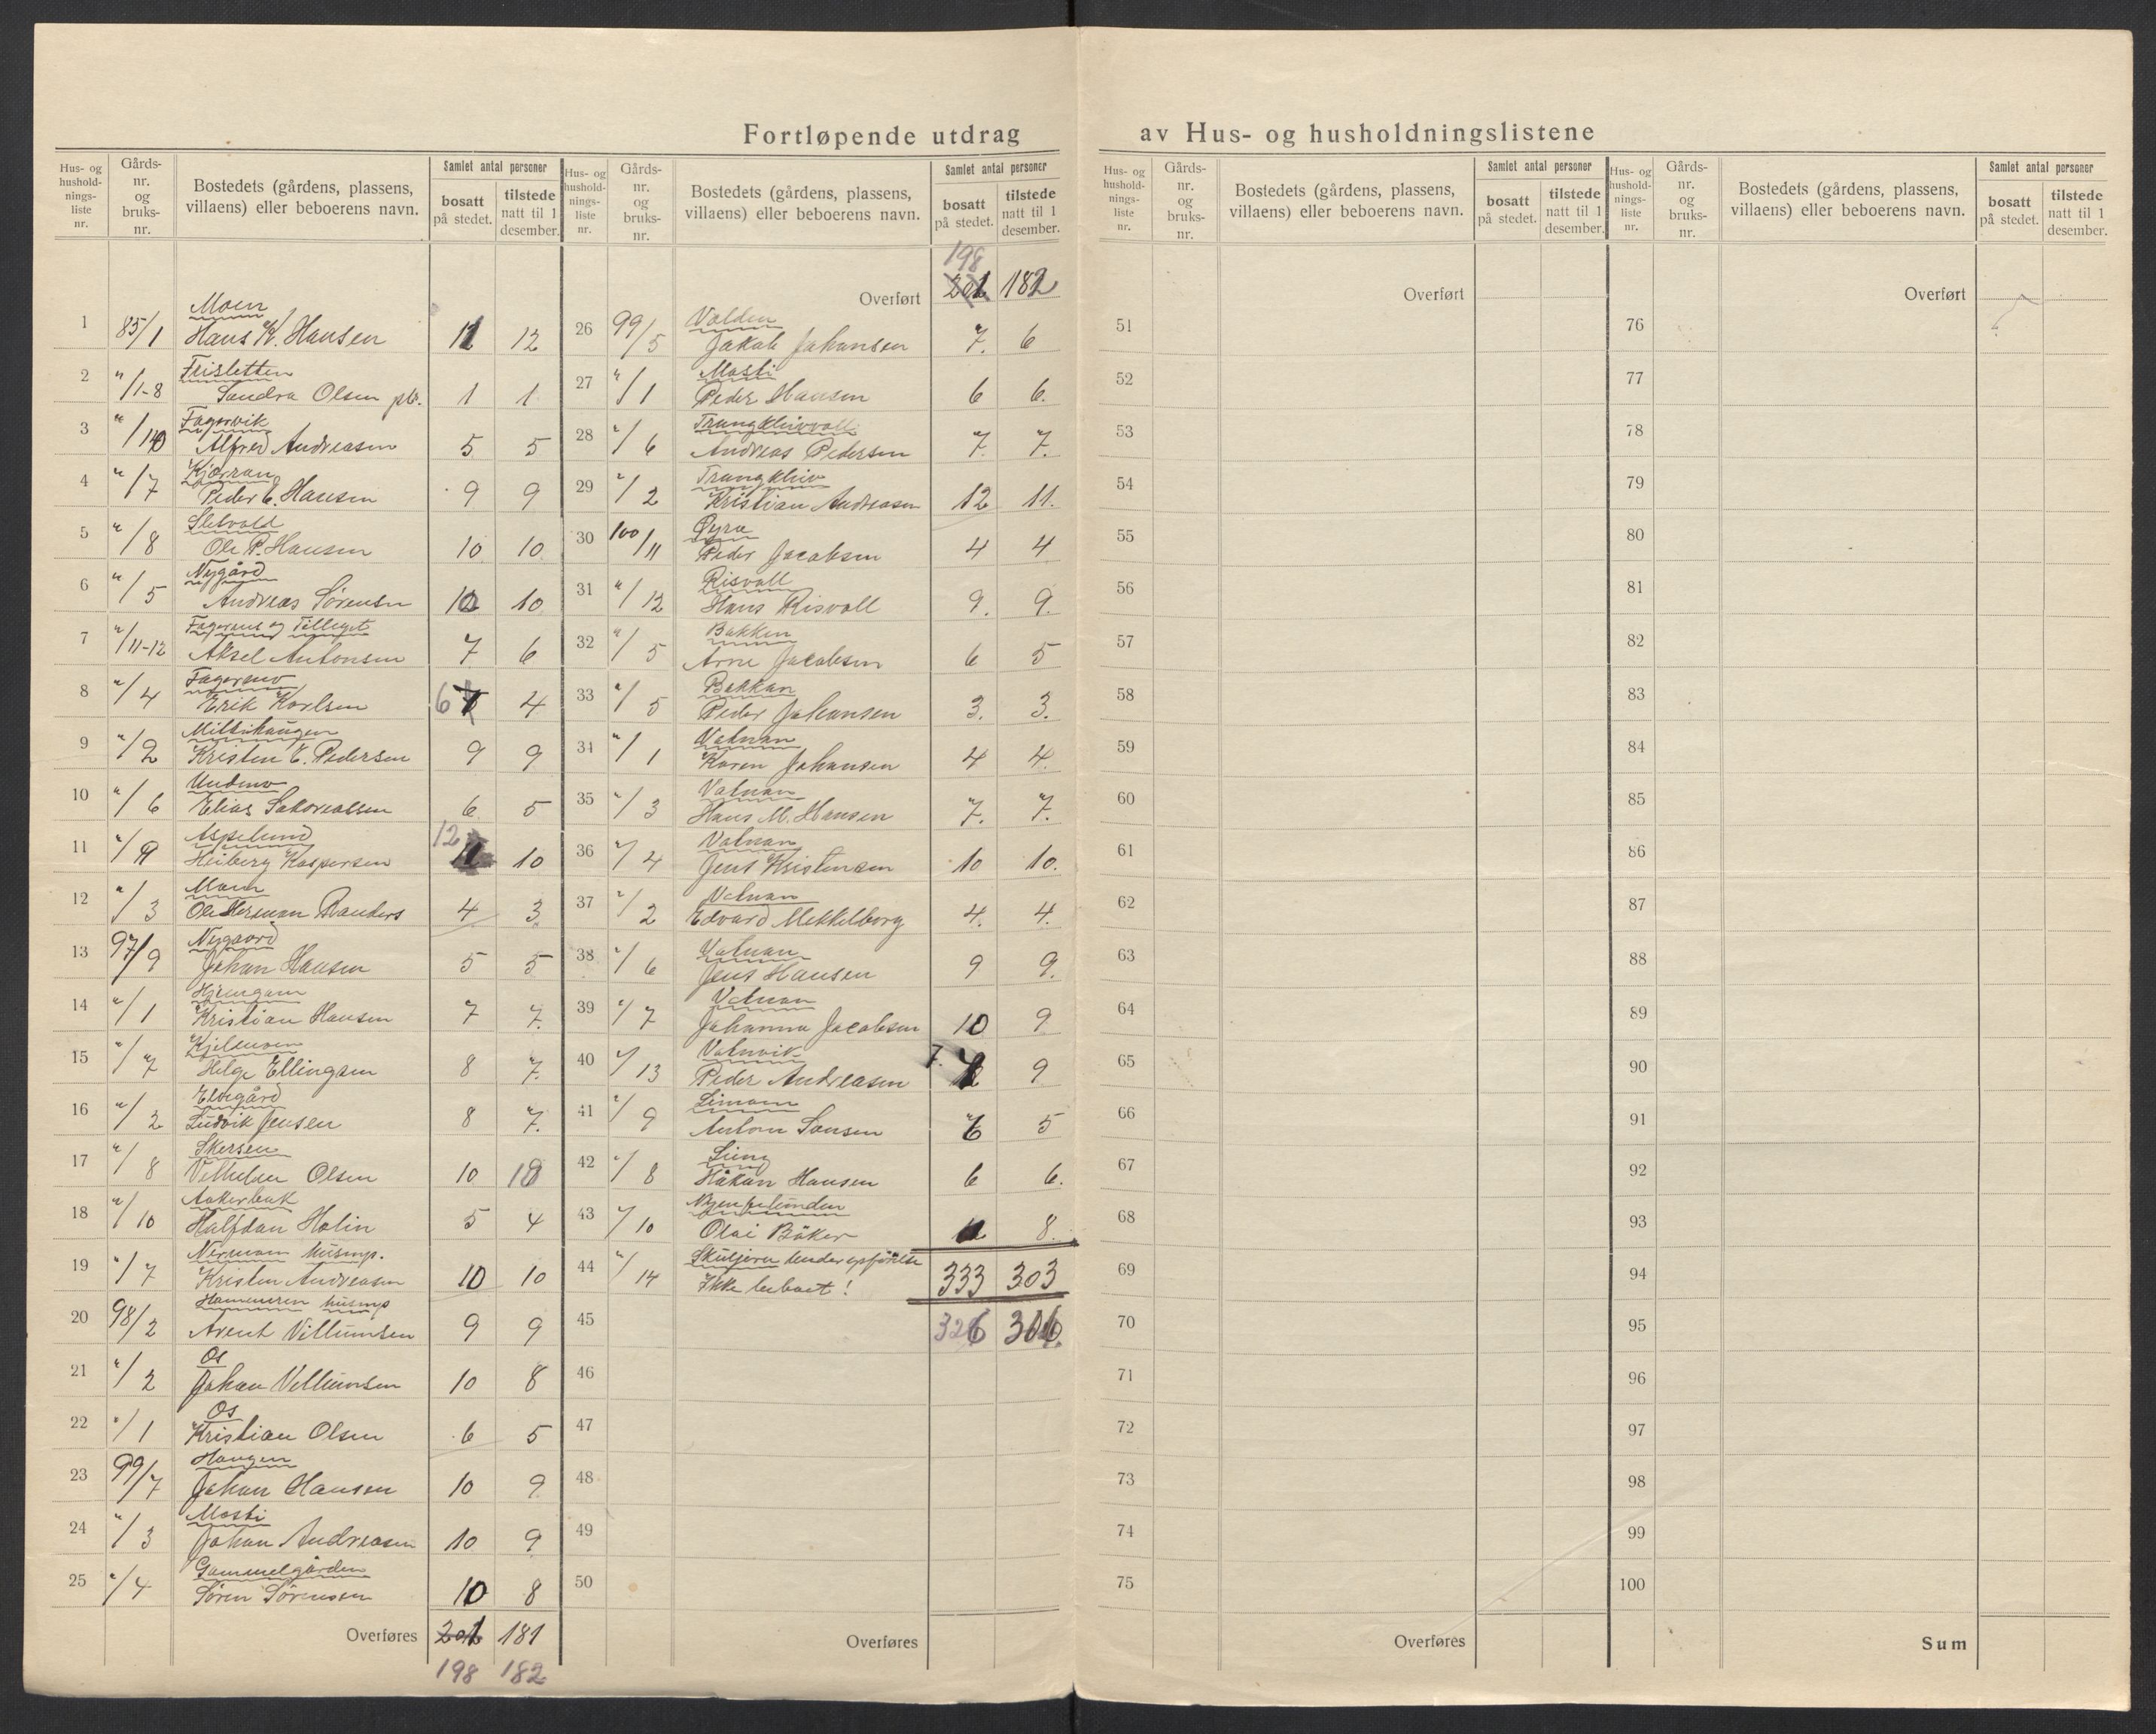 Fortløpende utdrag av Hus- og husholdningslistene
Hus- og hushold-nings-liste nr. Gårds-nr. og bruks-nr. Bostedets (gårdens, plassens, villaens) eller beboerens navn. Samlet antal personer bosatt på stedet. tilstede natt til 1 desember.
Moen
1 85/1 Hans K. Hansen 11 12
Flisletten
2 "/1-8 Sandra Olsen 1 1
Fagervik
3 "/10 Alfred Andreasen 5 5
Kjærran
4 "/7 Peder C. Hansen 9 9
Sletvold
5 "/8 Ole P. Hansen 10 10
Nygård
6 "/5 Andreas Sørensen 10 10
Fagernes og Tillegget
7 "/11-12 Aksel Antonsen 7 6
8 "/4 Erik Karlsen 6 4
9 "/2 Kristen E. Pedersen 9 9
10 "/6 Elias 6 5
Aspelund
11 "/9 Heiberg Kaspersen 12 10
Moen
12 "/3 Ole Herman Randers 4 3
Nygaard
13 97/9 Johan Hansen 5 5
14 "/1 Kristian Hansen 7 7
Kjeldmoen
15 "/7 Helge Ellingsen 8 7
Elvegård
16 "/2 Ludvik Jensen 8 7
17 "/8 Vilhelm Olsen 10 10
Aakerbuk
18 "/10 Halfdan Holin 5 4
Nermoen husmp.
19 "/7 Kristen Andreasen 10 10
Hammeren husmp
20 98/2 Arent Villumsen 9 9
Os
21 "/2 Johan Villumsen 10 8
Os
22 "/1 Kristian Olsen 6 5
Haugen
23 99/7 Johan Hansen 10 9
Mosti
24 "/3 Johan Andreasen 10 9
Gammelgården
25 "/4 Søren Sørensen 10 8
Overføres 201 181
198 182
Hus- og hushold-nings-liste nr. Gårds-nr. og bruks-nr. Bostedets (gårdens, plassens, villaens) eller beboerens navn. Samlet antal personer bosatt på stedet. tilstede natt til 1 desember.
198
Overført 201 182
Volden
26 99/5 Jakob Johansen 7. 6
Mosti
27 "/1 Peder Hansen 6 6.
Trangkleivvoll
28 "/6 Andreas Pedersen 7 7.
Trangkleiv
29 "/2 Kristian Andreasen 12 11.
Øyra
30 100/11 Peder Jacobsen 4 4
Risvoll
31 "/12 Hans Risvoll 9. 9.
Bakken
32 "/5 Arne Jacobsen 6 5
Bakkan
33 "/5 Peder Johansen 3. 3.
Vatnan
34 "/1 Karen Johansen 4 4.
Vatnan
35 "/3 Hans M. Hansen 7. 7.
Vatnan
36 "/4 Jens Kristensen 10 10.
Vatnan
37 "/2 Edvard Mekkelborg 4. 4.
Vatnan
38 "/6 Jens Hansen 9 9.
Vatnan
39 "/7 Johanna Jacobsen 10 9
Vatnvik
40 "/13 Peder Andreasen 7. 9
41 "/9 Antorn 6 5
42 "/8 Håkan Hansen 6 6.
43 "/10 Olai Båker 8.
44 "/14 333 303
Ikke beboet!
45 326 306.
46
47
48
49
50
Overføres
Hus- og hushold-nings-liste nr. Gårds-nr. og bruks-nr. Bostedets (gårdens, plassens, villaens) eller beboerens navn. Samlet antal personer bosatt på stedet. tilstede natt til 1 desember.
Overført
51
52
53
54
55
56
57
58
59
60
61
62
63
64
65
66
67
68
69
70
71
72
73
74
75
Overføres
Hus- og hushold-nings-liste nr. Gårds-nr. og bruks-nr. Bostedets (gårdens, plassens, villaens) eller beboerens navn. Samlet antal personer bosatt på stedet. tilstede natt til 1 desember.
Overført
76
77
78
79
80
81
82
83
84
85
86
87
88
89
90
91
92
93
94
95
96
97
98
99
100
Sum